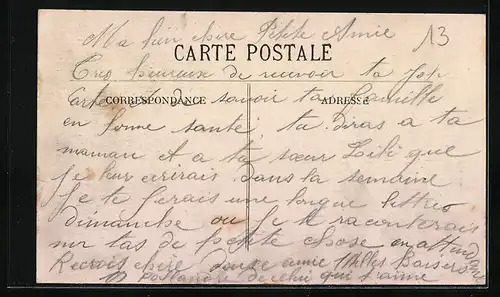 Ma bien chère Petite Amie
13
CARTE POSTALE
Très heureux de recevoir ta jolie
carte et de savoir ta famille
CORRESPONDANCE
ADRESSE
en bonne santé, tu diras a ta
maman et a ta sœur Lili que
je leur écrirais dans la semaine
je te ferais une longue lettre
dimanche ou je te raconterais
un tas de petite chose en attendant
Recois chère douce amie Milles Baisers
de celui qui t'aime